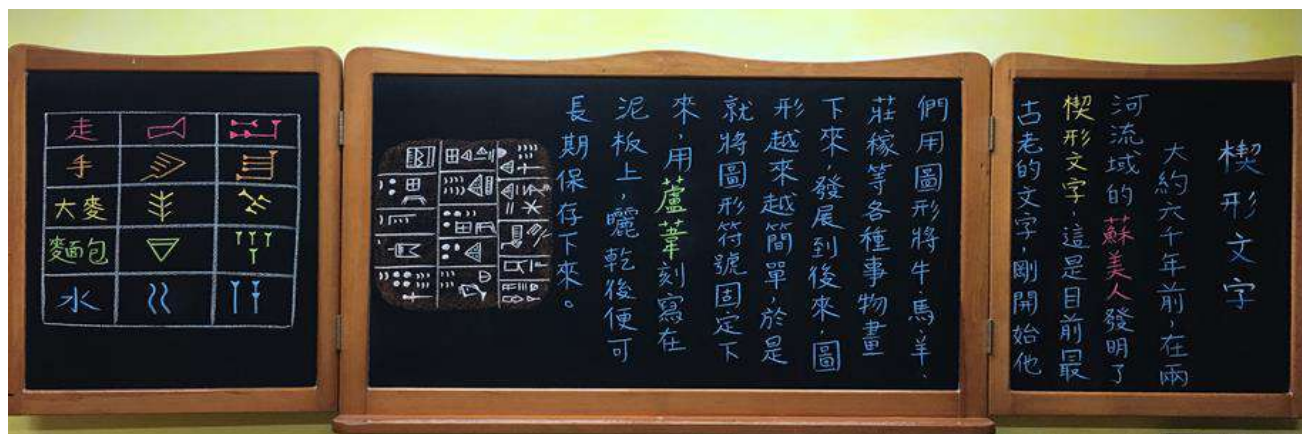 楔形文字
大約六千年前,在兩
河流域的蘇美人發明了
楔形文字,這是目前最
古老的文字,剛開始他
們用圖形將牛、馬、羊、
莊稼等各種事物畫
下來,發展到後來,圖
形越來越簡單,於是
就將圖形符號固定下
來,用蘆葦刻寫在
泥板上,曬乾後便可
長期保存下來。
走
手
大麥
麵包
水